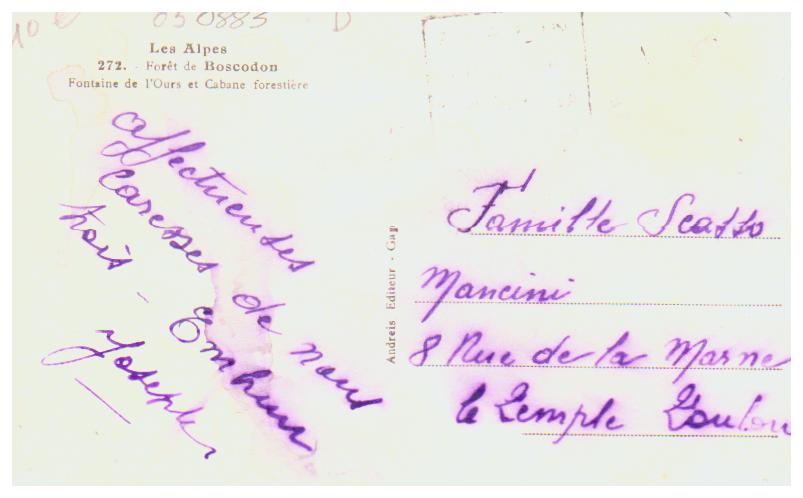 030883 D
Les Alpes
272. - Forêt de Boscodon
Fontaine de l'Ours et Cabane forestière
Affectueuses
Caresses de nous
trois - Embrun
Joseph
Andreis Editeur - Gap
Famille Scasso
Mancini
8 Rue de la Marne
le Temple Toulon